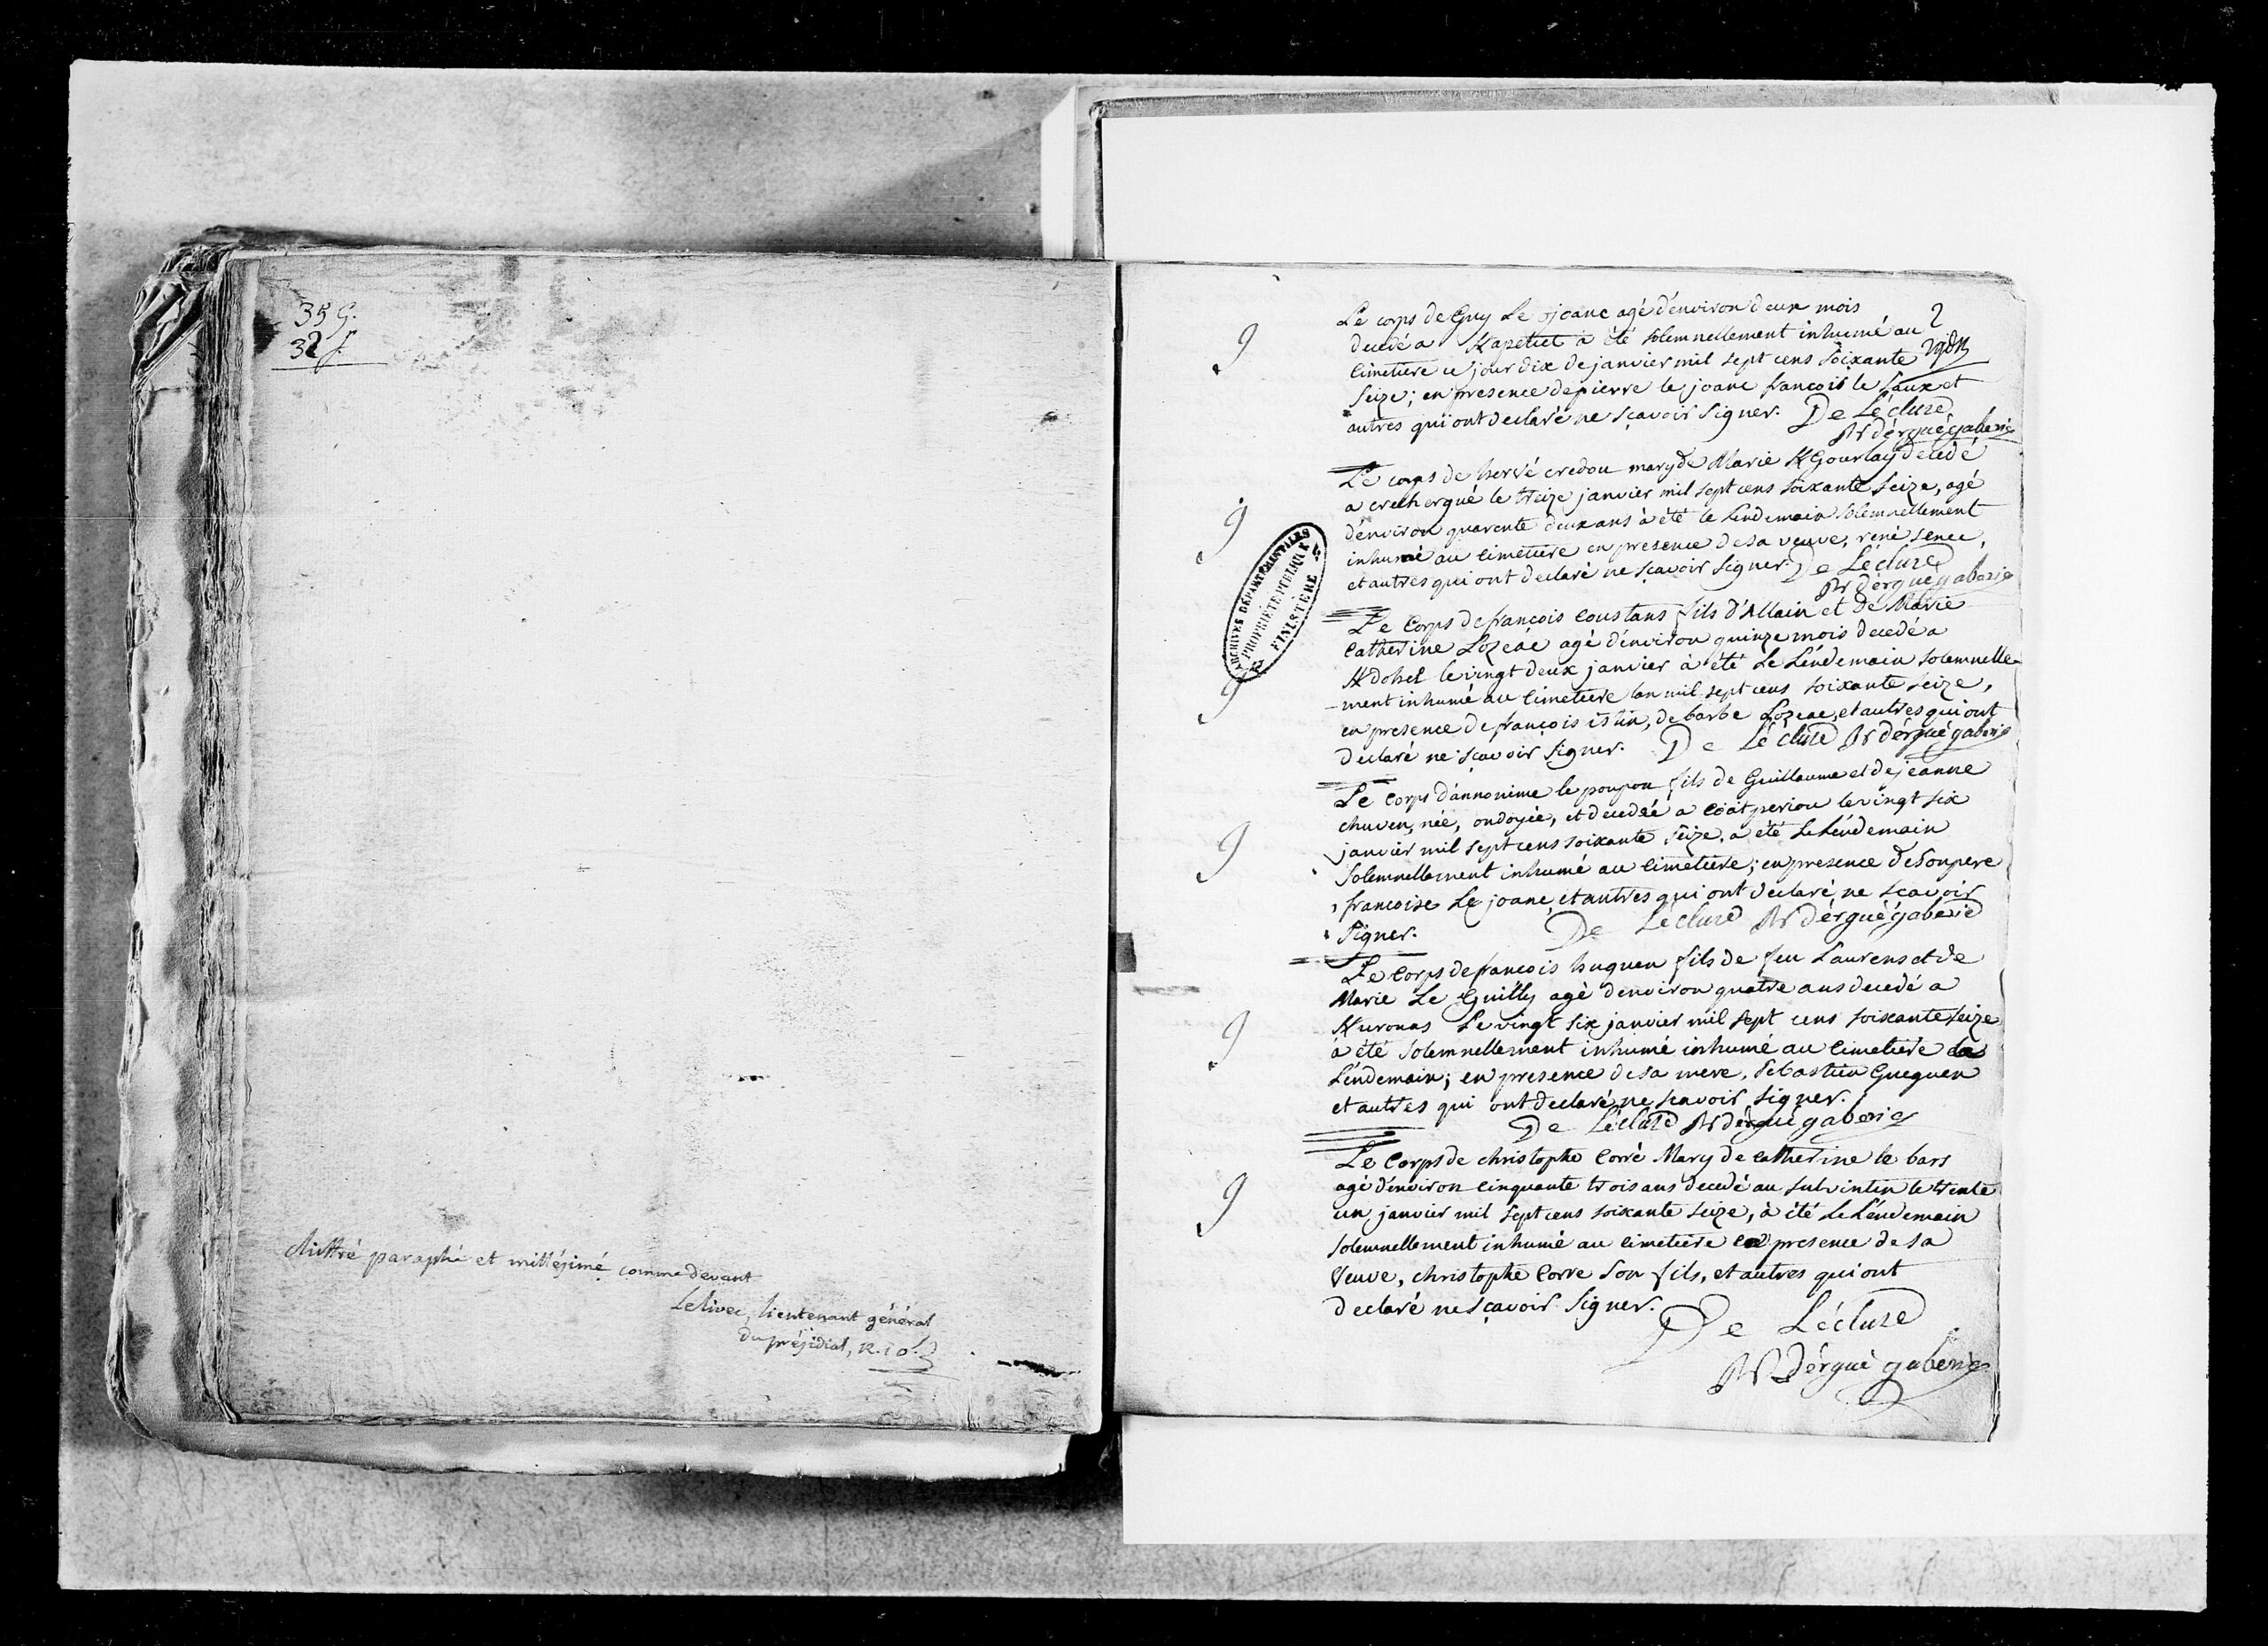 35 G.
32 f.
chiffré paraphé et millésimé comme devant
Le livec, lieutenant général
du présidial,
Le corps de Guy Le joanc agé d'environ deux mois
decedé a Kapetit a été solemnellement inhumé au
cimetiere ce jour dix de janvier mil sept cens soixante
seize; en presence de pierre le joanc francois le saux et
autres qui ont declaré ne sçavoir signer. De Lécluse
Rr dérgué gaberic
Le corps de hervé credou mary de Marie KGourlay decedé
a crecherqué le treize janvier mil sept cens soixante seize, agé
d'environ quarente deux ans à été le Lendemain solemnellement
inhumé au cimetiere en presence de sa veuve, réné senec,
et autres qui ont declaré ne sçavoir signer. De Lécluse
Rr dérgué gaberic
Le Corps de francois Coustans fils d'Allain et de Marie
Catherine Lozeác agé d'environ quinze mois decedé a
Kdohel le vingt deux janvier à été Le Léndemain solemnelle-
-ment inhumé au Cimetiere lan mil sept cens soixante seize,
en presence de françois istin, de barbe Lozeac, et autres qui ont
declaré ne sçavoir signer. De Lécluse Rr dérgué gaberic
Le Corps d'annonime le poupon fils de Guillaume et de jeanne
chuven, née, ondoyée, et decedéé a Coat periou le vingt six
janvier mil sept cens soixante seize, a été Le Léndemain
Solemnellement inhumé au Cimetiere; en presence de son pere
francoise Le joanc, et autres qui ont declaré ne sçavoir
Signer. De Lécluse Rr dérgué gaberic
Le Corps de francois huguen fils de feu Laurens et de
Marie Le Guilly agé d'environ quatre ans decedé a
Kuronas Le vingt six janvier mil sept cens soixante seize
à été solemnellement inhumé inhumé au Cimetiere le
Léndemain; en presence de sa mere, Sebastien Gueguen
et autres qui ont declaré ne scavoir signer.
De Lécluse Rr dérgué gaberic
Le Corps de christophe Corré Mary de Catherine le bars
agé d'environ cinquante trois ans decedé au sulvintin le trente
un janvier mil sept cens soixante seize, à été Le Léndemain
solemnellement inhumé au Cimetiere en presence de sa
Veuve, christophe Corre son fils, et autres qui ont
declaré ne sçavoir signer.
De Lécluse
Rr dérgué gaberic
ARCHIVES DÉPARTEMENTALES
PROPRIÉTÉ PUBLIQUE
FINISTÈRE